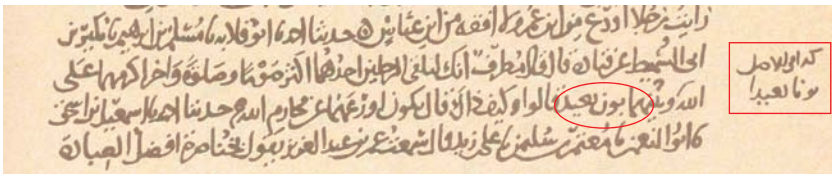 رايت رجلا اورع من ابن عمر ولا افقه من ابن عباس ه حدثنا احمد نا ابو قلابه نا مسلم بن ابرهيم نا بكير بن
ابي السميط عن قتادة قال قال مطرف انك لتلقى الرجلين احدهما اكثر صوما وصلوة واخر اكرمهما على
الله وبينهما بون بعيد قالوا وكيف ذاك قال يكون اورعهما عن محارم الله ه حدثنا احمد نا اسمعيل بن اسحق
نا ابو النعمن نا معتمر بن سليمن نا علي بن زيد قال سمعت عمر بن عبد العزيز يقول بخناصرة افضل العبادة
كذا في الاصل
بونا بعيدا